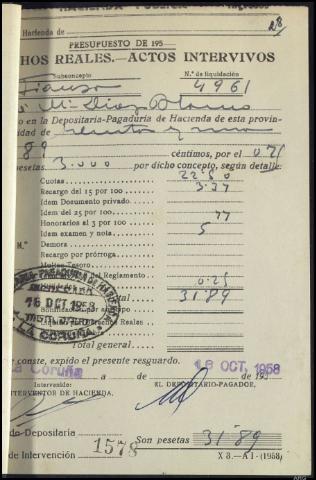 HACIENDA PUBLICA
Ingresos
Hacienda de
28
PRESUPUESTO DE 195
HOS REALES.—ACTOS INTERVIVOS
Subconcepto
N.º de liquidación
Fianza
4961
Mª Diaz Blanco
o en la Depositaria-Pagaduría de Hacienda de esta provin-
idad de treinta y uno
89
céntimos, por el 0.75
pesetas 3.000 por dicho concepto, según detalle:
Cuotas 22.50
Recargo del 15 por 100 3.37
Idem Documento privado
Idem del 25 por 100
Honorarios al 3 por 100 77
Idem examen y nota 5
N.º
Demora
Recargo por prórroga
Multas Tesoro
del Reglamento
0.25
tal 31.89
Bonificación por
Reales
Total general
PAGADURIA DE HACIENDA
16 OCT 1958
LA CORUÑA
er conste, expido el presente resguardo.
La Coruña a de de 195
16 OCT. 1958
Intervenido:
EL DEPOSITARIO-PAGADOR,
INTERVENTOR DE HACIENDA,
de-Depositaría
Son pesetas 31.89
de Intervención 1578
X 3.—A I—(1958)
ARG